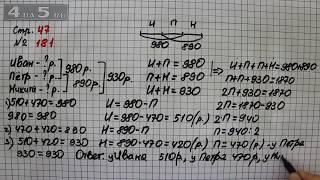 4.5
Стр. 47
№ 181
И П Н
980 890
Иван - ? р.
Пётр - ? р.
Никита - ? р.
980 р.
890 р.
930 р.
И + П = 980
П + Н = 890
И + Н = 930
И+П+П+Н=980+890
П+П+930=1870
2П+930=1870
2П=1870-930
2П=940
П=940:2
П=470(р.) - у Петра
1) 510+470=980
980=980
2) 470+420=890
3) 510+420=930
930=930
И=980-П
И=980-470=510(р.)
Н=890-П
Н=890-470=420(р.)
Ответ: у Ивана 510р, у Петра 470р, у Ни